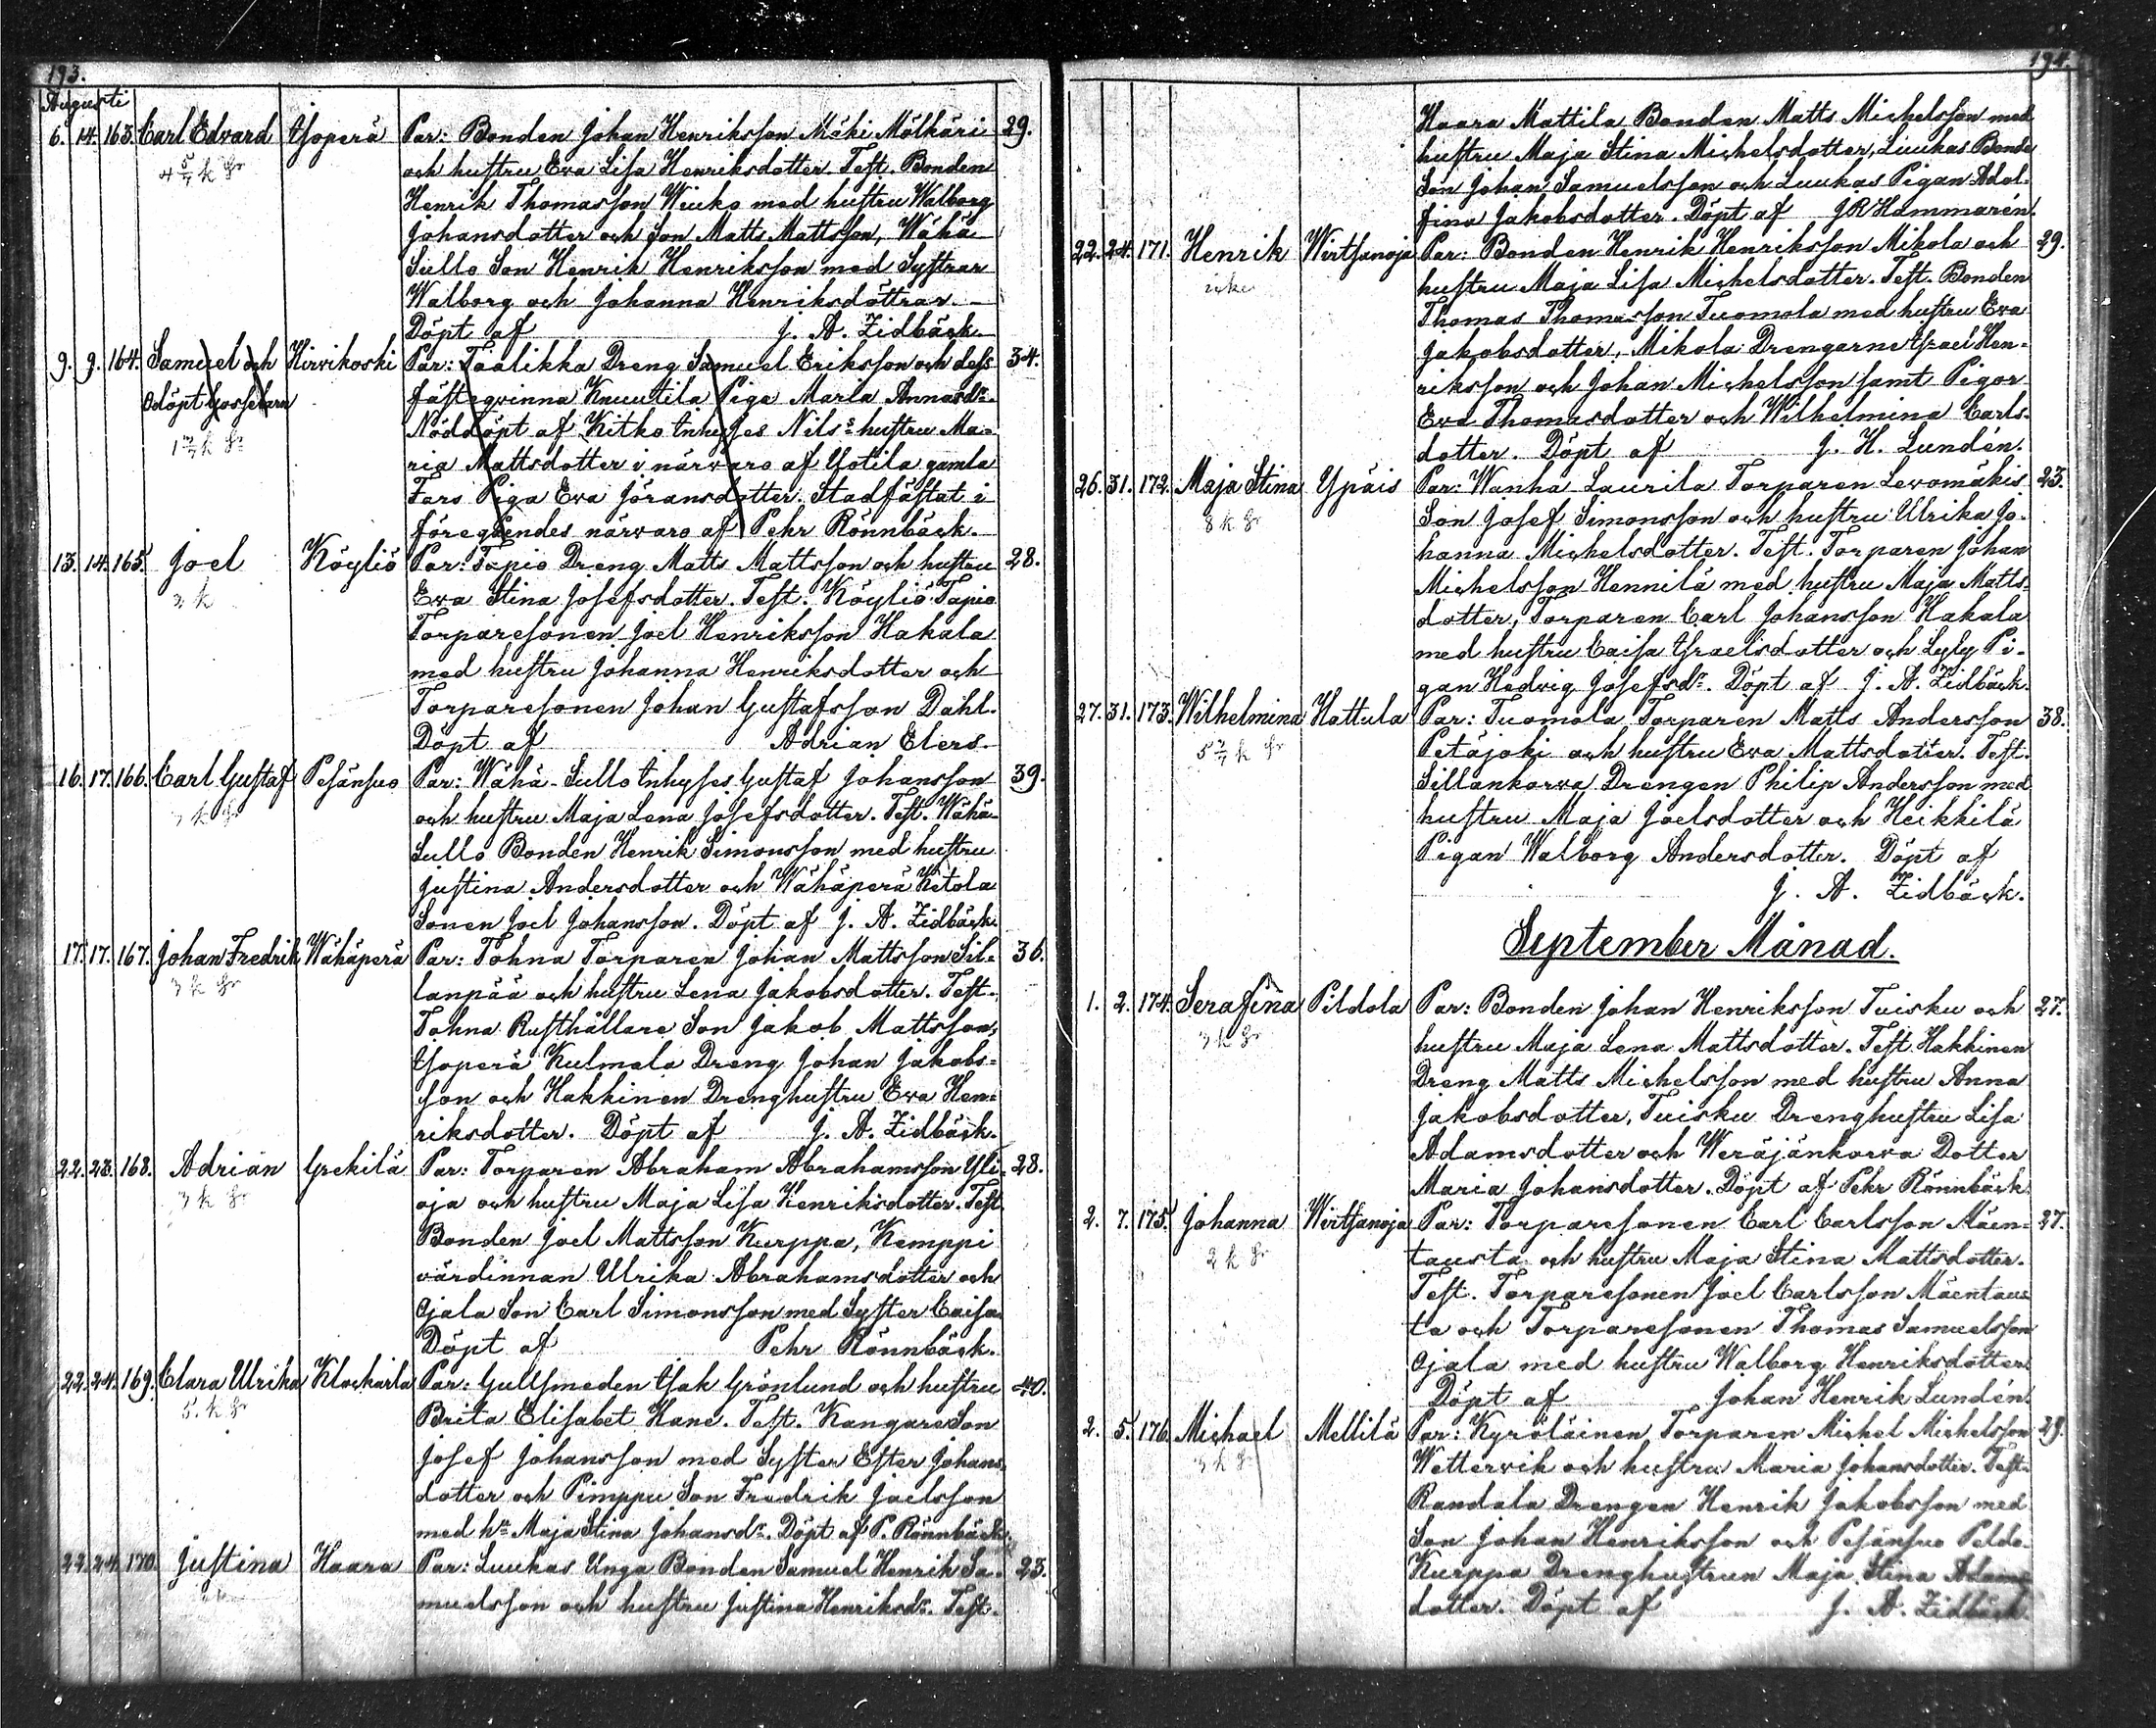 193.
Augusti
6. 14. 163. Carl Edvard Isoperä Par: Bonden Johan Henriksson Mäki Mälkäri 29.
och hustru Eva Lisa Henriksdotter. Test. Bonden
Henrik Thomasson Wiuko med hustru Walborg
Johansdotter och Son Matts Mattsson, Wähä
Sullo Son Henrik Henriksson med Systrar
Walborg och Johanna Henriksdöttrar.
Döpt af J. A. Zidbäck.
9. 9. 164. Samuel och Hirvikoski Par: Taalikka Dreng Samuel Eriksson och dess 34.
Odöpt Gossebarn fästeqvinna Knuutila Piga Maria Annasdr.
Nöddöpt af Kitko Inhyses Nils's hustru Ma-
ria Mattsdotter i närvaro af Yotila gamla
Fars Piga Eva Jöransdotter. Stadfästat i
föregåendes närvaro af Pehr Rönnbäck.
13. 14. 165. Joel Köyliö Par: Tapio Dreng Matts Mattsson och hustru 28.
3 k Eva Stina Josefsdotter. Test. Köyliö Tapio
Torparesonen Joel Henriksson Hakala
med hustru Johanna Henriksdotter och
Torparesonen Johan Gustafsson Dahl.
Döpt af Adrian Elers.
16. 17. 166. Carl Gustaf Pesänsuo Par: Wähä-Sullo Inhyses Gustaf Johansson 39.
och hustru Maja Lena Josefsdotter. Test. Wähä-
Sullo Bonden Henrik Simonsson med hustru
Justina Andersdotter och Wähäperä Ketola
Sonen Joel Johansson. Döpt af J. A. Zidbäck.
17. 17. 167. Johan Fredrik Wähäperä Par: Tohna Torparen Johan Mattsson Sil- 36.
3 k gr lanpää och hustru Lena Jakobsdotter. Test.
Tohna Rusthållare Son Jakob Mattsson,
Isoperä Kulmala Dreng Johan Jakobs-
son och Hakkinen Drenghustru Eva Hen-
riksdotter. Döpt af J. A. Zidbäck.
22. 23. 168. Adrian Grekilä Par: Torparen Abraham Abrahamsson Yli- 28.
3 k gr oja och hustru Maja Lisa Henriksdotter. Test.
Bonden Joel Mattsson Kurppa, Kemppi
värdinnan Ulrika Abrahamsdotter och
Ojala Son Carl Simonsson med Syster Caisa
Döpt af Pehr Rönnbäck.
22. 24. 169. Clara Ulrika Klockarla Par: Gullsmeden Isak Grönlund och hustru 40.
5. k gr Brita Elisabet Hane. Test. Kangare Son
Josef Johansson med Syster Ester Johans-
dotter och Pimppu Son Fredrik Joelsson
med hu Maja Stina Johansdr. Döpt af P. Rönnbäck.
22. 24. 170. Justina Haara Par: Luukas Unga Bonden Samuel Henrik Sa- 23.
muelsson och hustru Justina Henriksdr. Test.
194.
Haara Mattila Bonden Matts Michelsson med
hustru Maja Stina Michelsdotter, Luukas Bonde
Son Johan Samuelsson och Luukas Pigan Adol-
fina Jakobsdotter. Döpt af J R Hammarén.
22. 24. 171. Henrik Wirtsanoja Par: Bonden Henrik Henriksson Mikola och 29.
icke hustru Maja Lisa Michelsdotter. Test. Bonden
Thomas Thomasson Tuomola med hustru Eva
Jakobsdotter, Mikola Drengarne Israel Hen-
riksson och Johan Michelsson samt Pigor
Eva Thomasdotter och Wilhelmina Carls-
dotter. Döpt af J. H. Lundén.
26. 31. 172. Maja Stina Ypäis Par: Wanha Laurila Torparen Levomäkis 23.
8 k gr Son Josef Simonsson och hustru Ulrika Jo-
hanna Michelsdotter. Test. Torparen Johan
Michelsson Hennilä med hustru Maja Matts-
dotter, Torparen Carl Johansson Hakala
med hustru Caisa Israelsdotter och Lyly Pi-
gan Hedvig Josefsdr. Döpt af J. A. Zidbäck.
27. 31. 173. Wilhelmina Hattula Par: Tuomola Torparen Matts Andersson 38.
Petäjoki och hustru Eva Mattsdotter. Test.
Sillankorva Drengen Philip Andersson med
hustru Maja Joelsdotter och Heikkilä
Pigan Walborg Andersdotter. Döpt af
J. A. Zidbäck.
September Månad.
1. 2. 174. Serafina Pildola Par: Bonden Johan Henriksson Tuisku och 27.
3 k gr hustru Maja Lena Mattsdotter. Test. Hakkinen
Dreng Matts Michelsson med hustru Anna
Jakobsdotter, Tuisku Drenghustru Lisa
Adamsdotter och Weräjänkorva Dotter
Maria Johansdotter. Döpt af Pehr Rönnbäck
2. 7. 175. Johanna Wirtsanoja Par: Torparesonen Carl Carlsson Mäen- 27.
2 k gr tausta och hustru Maja Stina Mattsdotter.
Test. Torparesonen Joel Carlsson Mäentaus
ta och Torparesonen Thomas Samuelsson
Ojala med hustru Walborg Henriksdotter
Döpt af Johan Henrik Lundén.
2. 5. 176. Michael Mellilä Par: Kyröläinen Torparen Michel Michelsson 29.
3 k gr Wettervik och hustru Maria Johansdotter. Test.
Randala Drengen Henrik Jakobsson med
Son Johan Henriksson och Pesänsuo Peldo-
Kurppa Drenghustrun Maja Stina Adams
dotter. Döpt af J. A. Zidbäck.